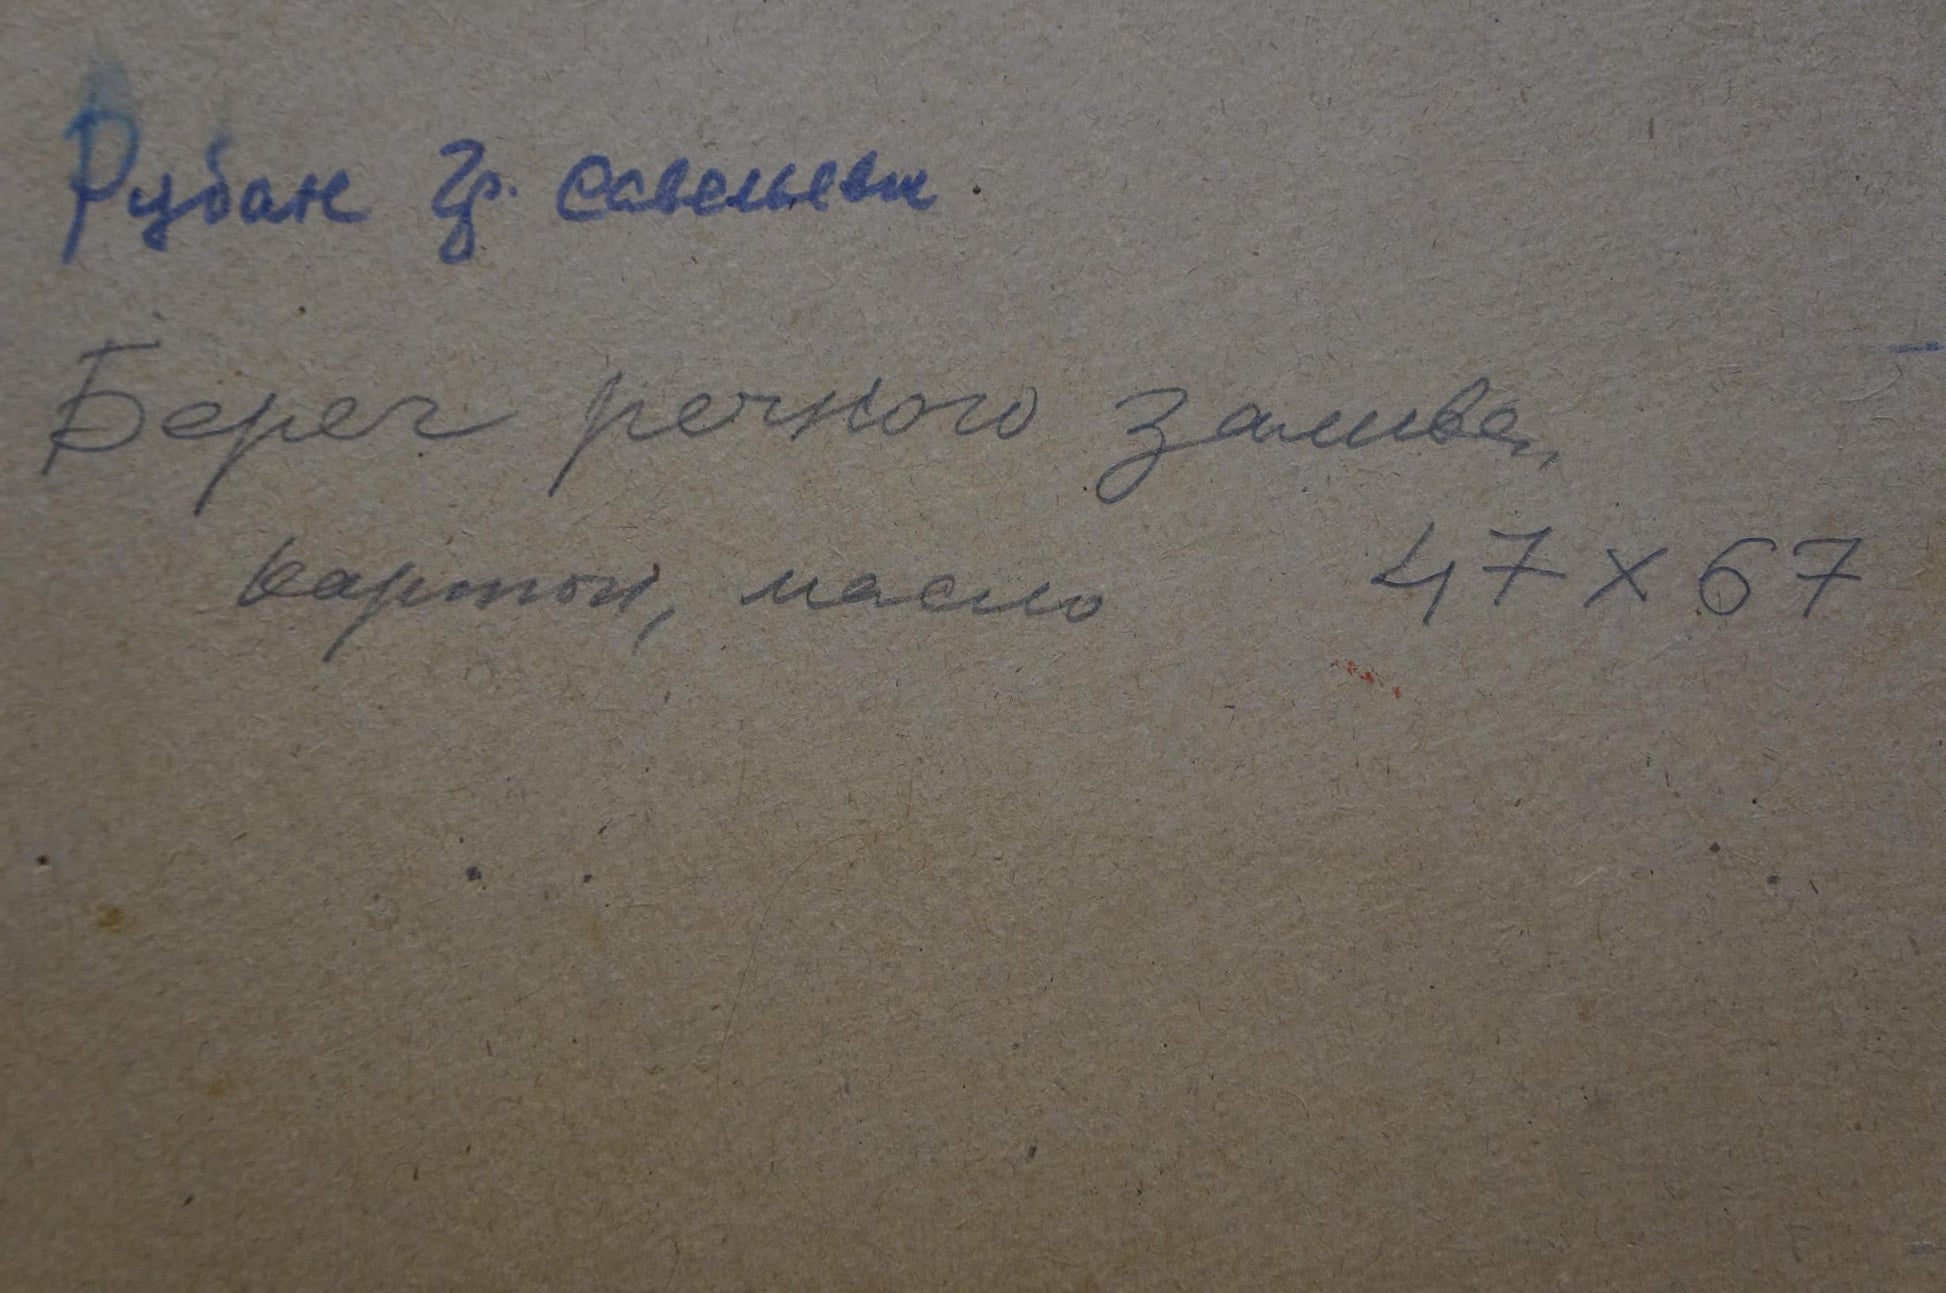 Рубан Гр. Савельевич
Берег речного залива,
картон, масло 47 x 67